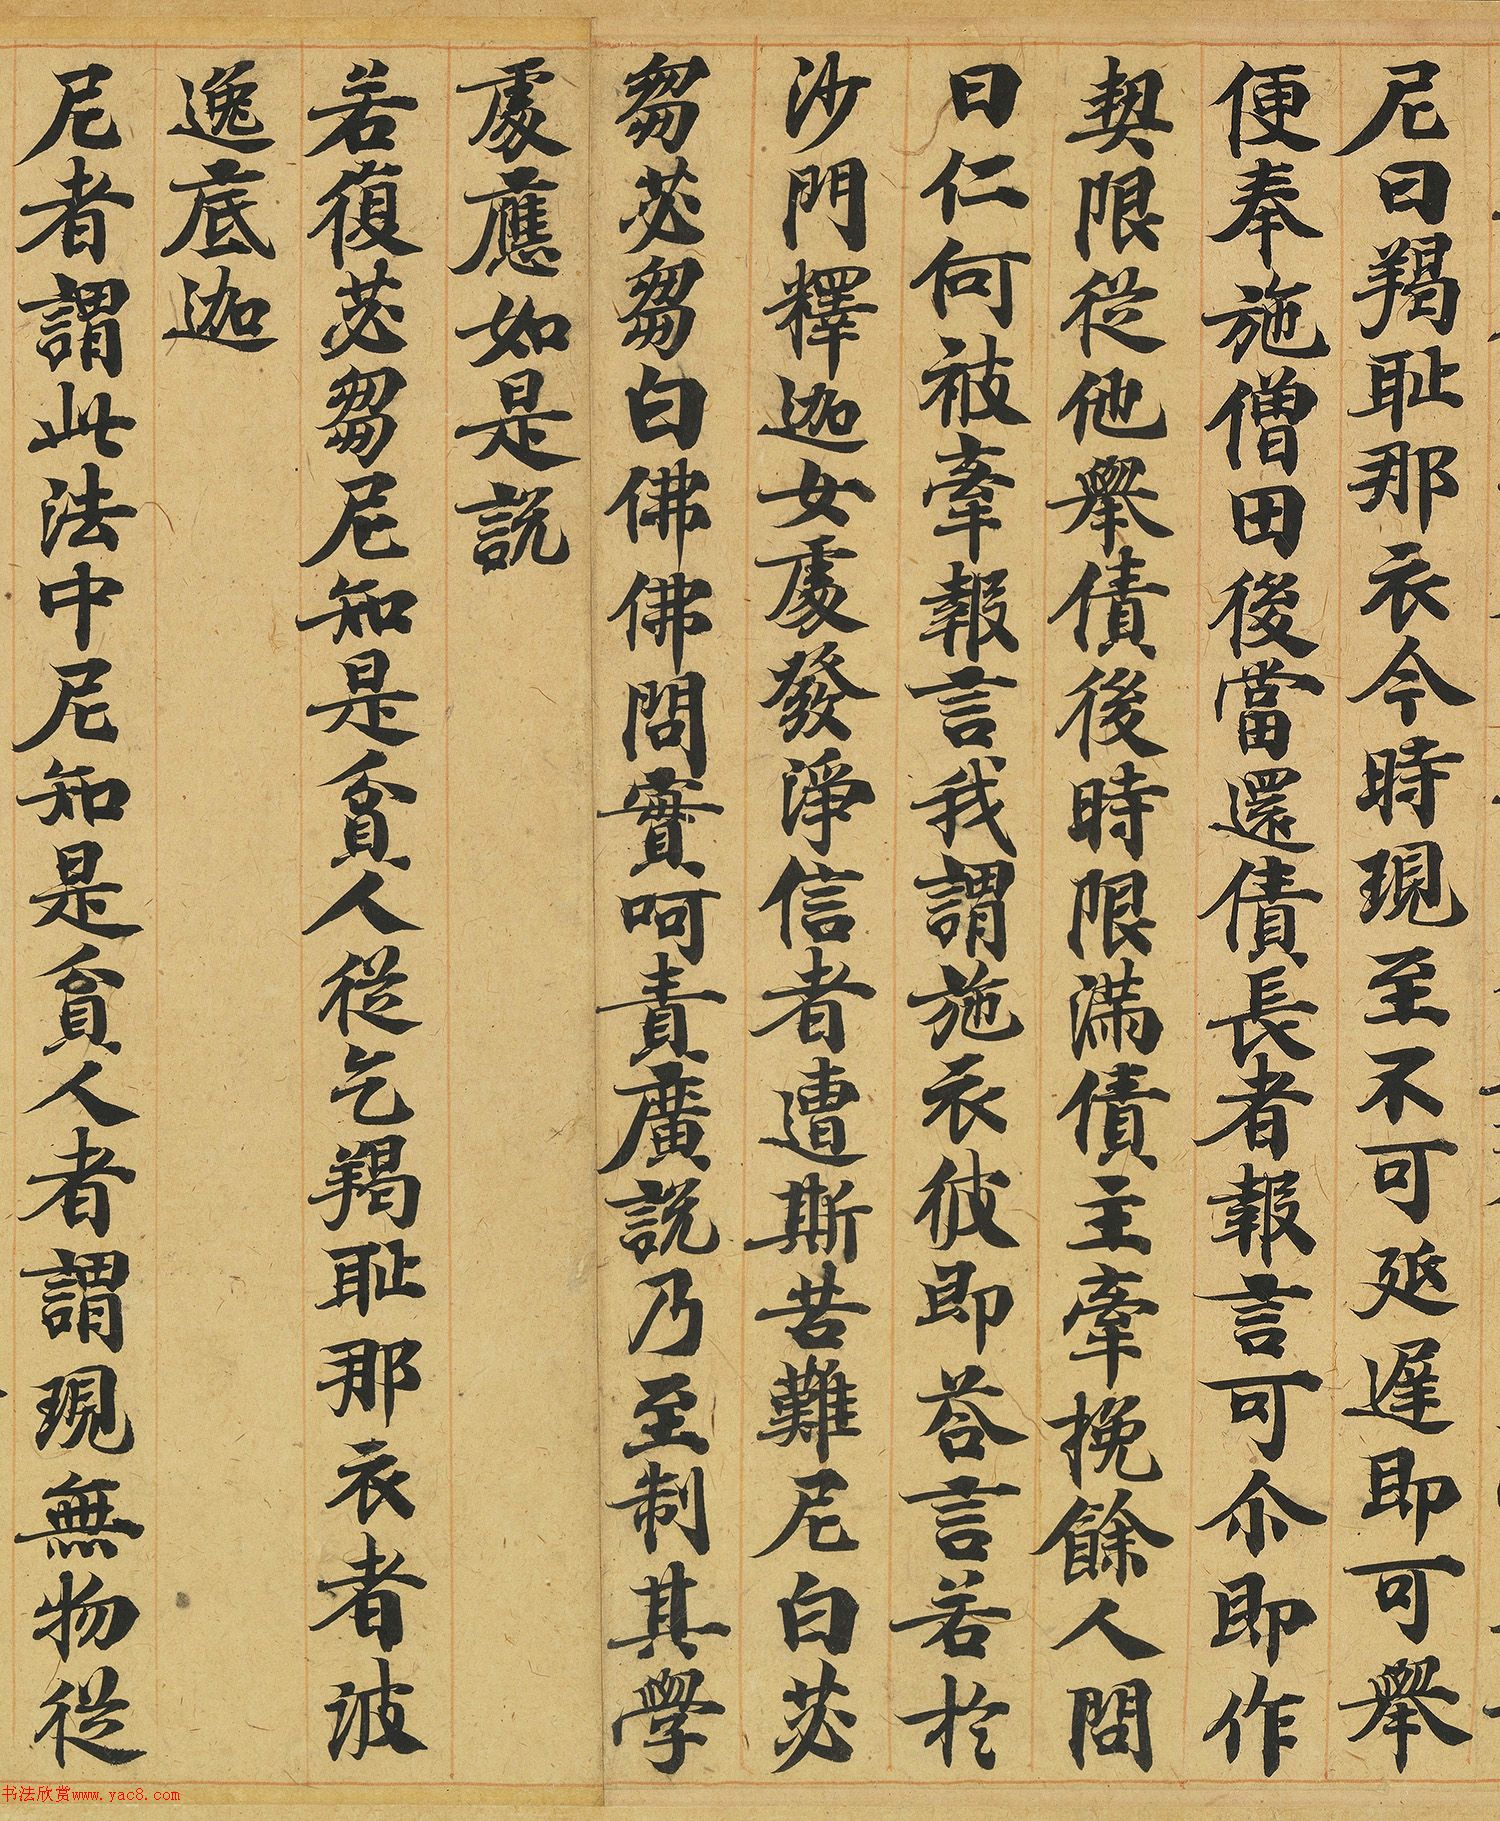 尼曰羯耻那衣今時現至不可延遲即可舉
便奉施僧田後當還債長者報言可尒即作
契限從他舉債後時限滿債主牽挽餘人問
曰仁何被牽報言我謂施衣彼即荅言若於
沙門釋迦女處發淨信者遭斯苦難尼白苾
芻苾芻白佛佛問實呵責廣說乃至制其學
處應如是說
若復苾芻尼知是貧人從乞羯耻那衣者波
逸底迦
尼者謂此法中尼知是貧人者謂現無物從
书法欣赏www.yac8.com